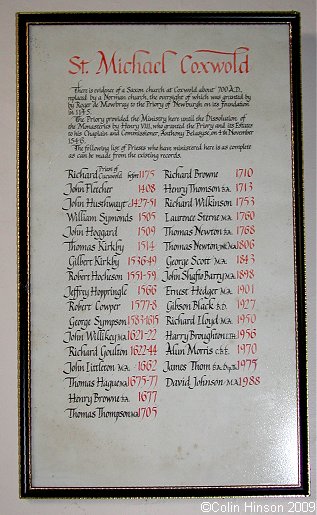 St. Michael Coxwold
There is evidence of a Saxon church at Coxwold about 700 A.D.,
replaced by a Norman church, the oversight of which was granted by
by Roger de Mowbray to the Priory of Newburgh on its foundation
in 1145.
The Priory provided the Ministry here until the Dissolution of
the Monasteries by Henry VIII, who granted the Priory and its Estates
to his Chaplain and Commissioner, Anthony Belasyse, on 4th November
1546.
The following list of Priests who have ministered here is as complete
as can be made from the existing records.
Richard Prior of Cucuwold before 1175
John Fletcher 1408
John Husthwayt 1427-51
William Symonds 1505
John Hoggard 1509
Thomas Kirkby 1514
Gilbert Kirkby 1536-49
Robert Hocheson 1551-59
Jeffry Hoppringle 1566
Robert Cowper 1577-8
George Sympson 1583-1615
John Willikey M.A. 1621-22
Richard Goulton 1622-44
John Littleton M.A. -1662
Thomas Hague M.A. 1675-77
Henry Browne B.A. 1677
Thomas Thompson M.A. 1705
Richard Browne 1710
Henry Thomson B.A. 1713
Richard Wilkinson 1753
Laurence Sterne M.A. 1760
Thomas Newton B.A. 1768
Thomas Newton M.A. 1806
George Scott M.A. 1843
John Shafto Barry M.A. 1898
Ernest Hedger M.A. 1901
Gibson Black B.D. 1927
Richard Lloyd M.A. 1950
Harry Broughton L.TH. 1956
Alun Morris C.B.E. 1970
James Thom B.A. 1975
David Johnson M.A. 1988
©Colin Hinson 2009